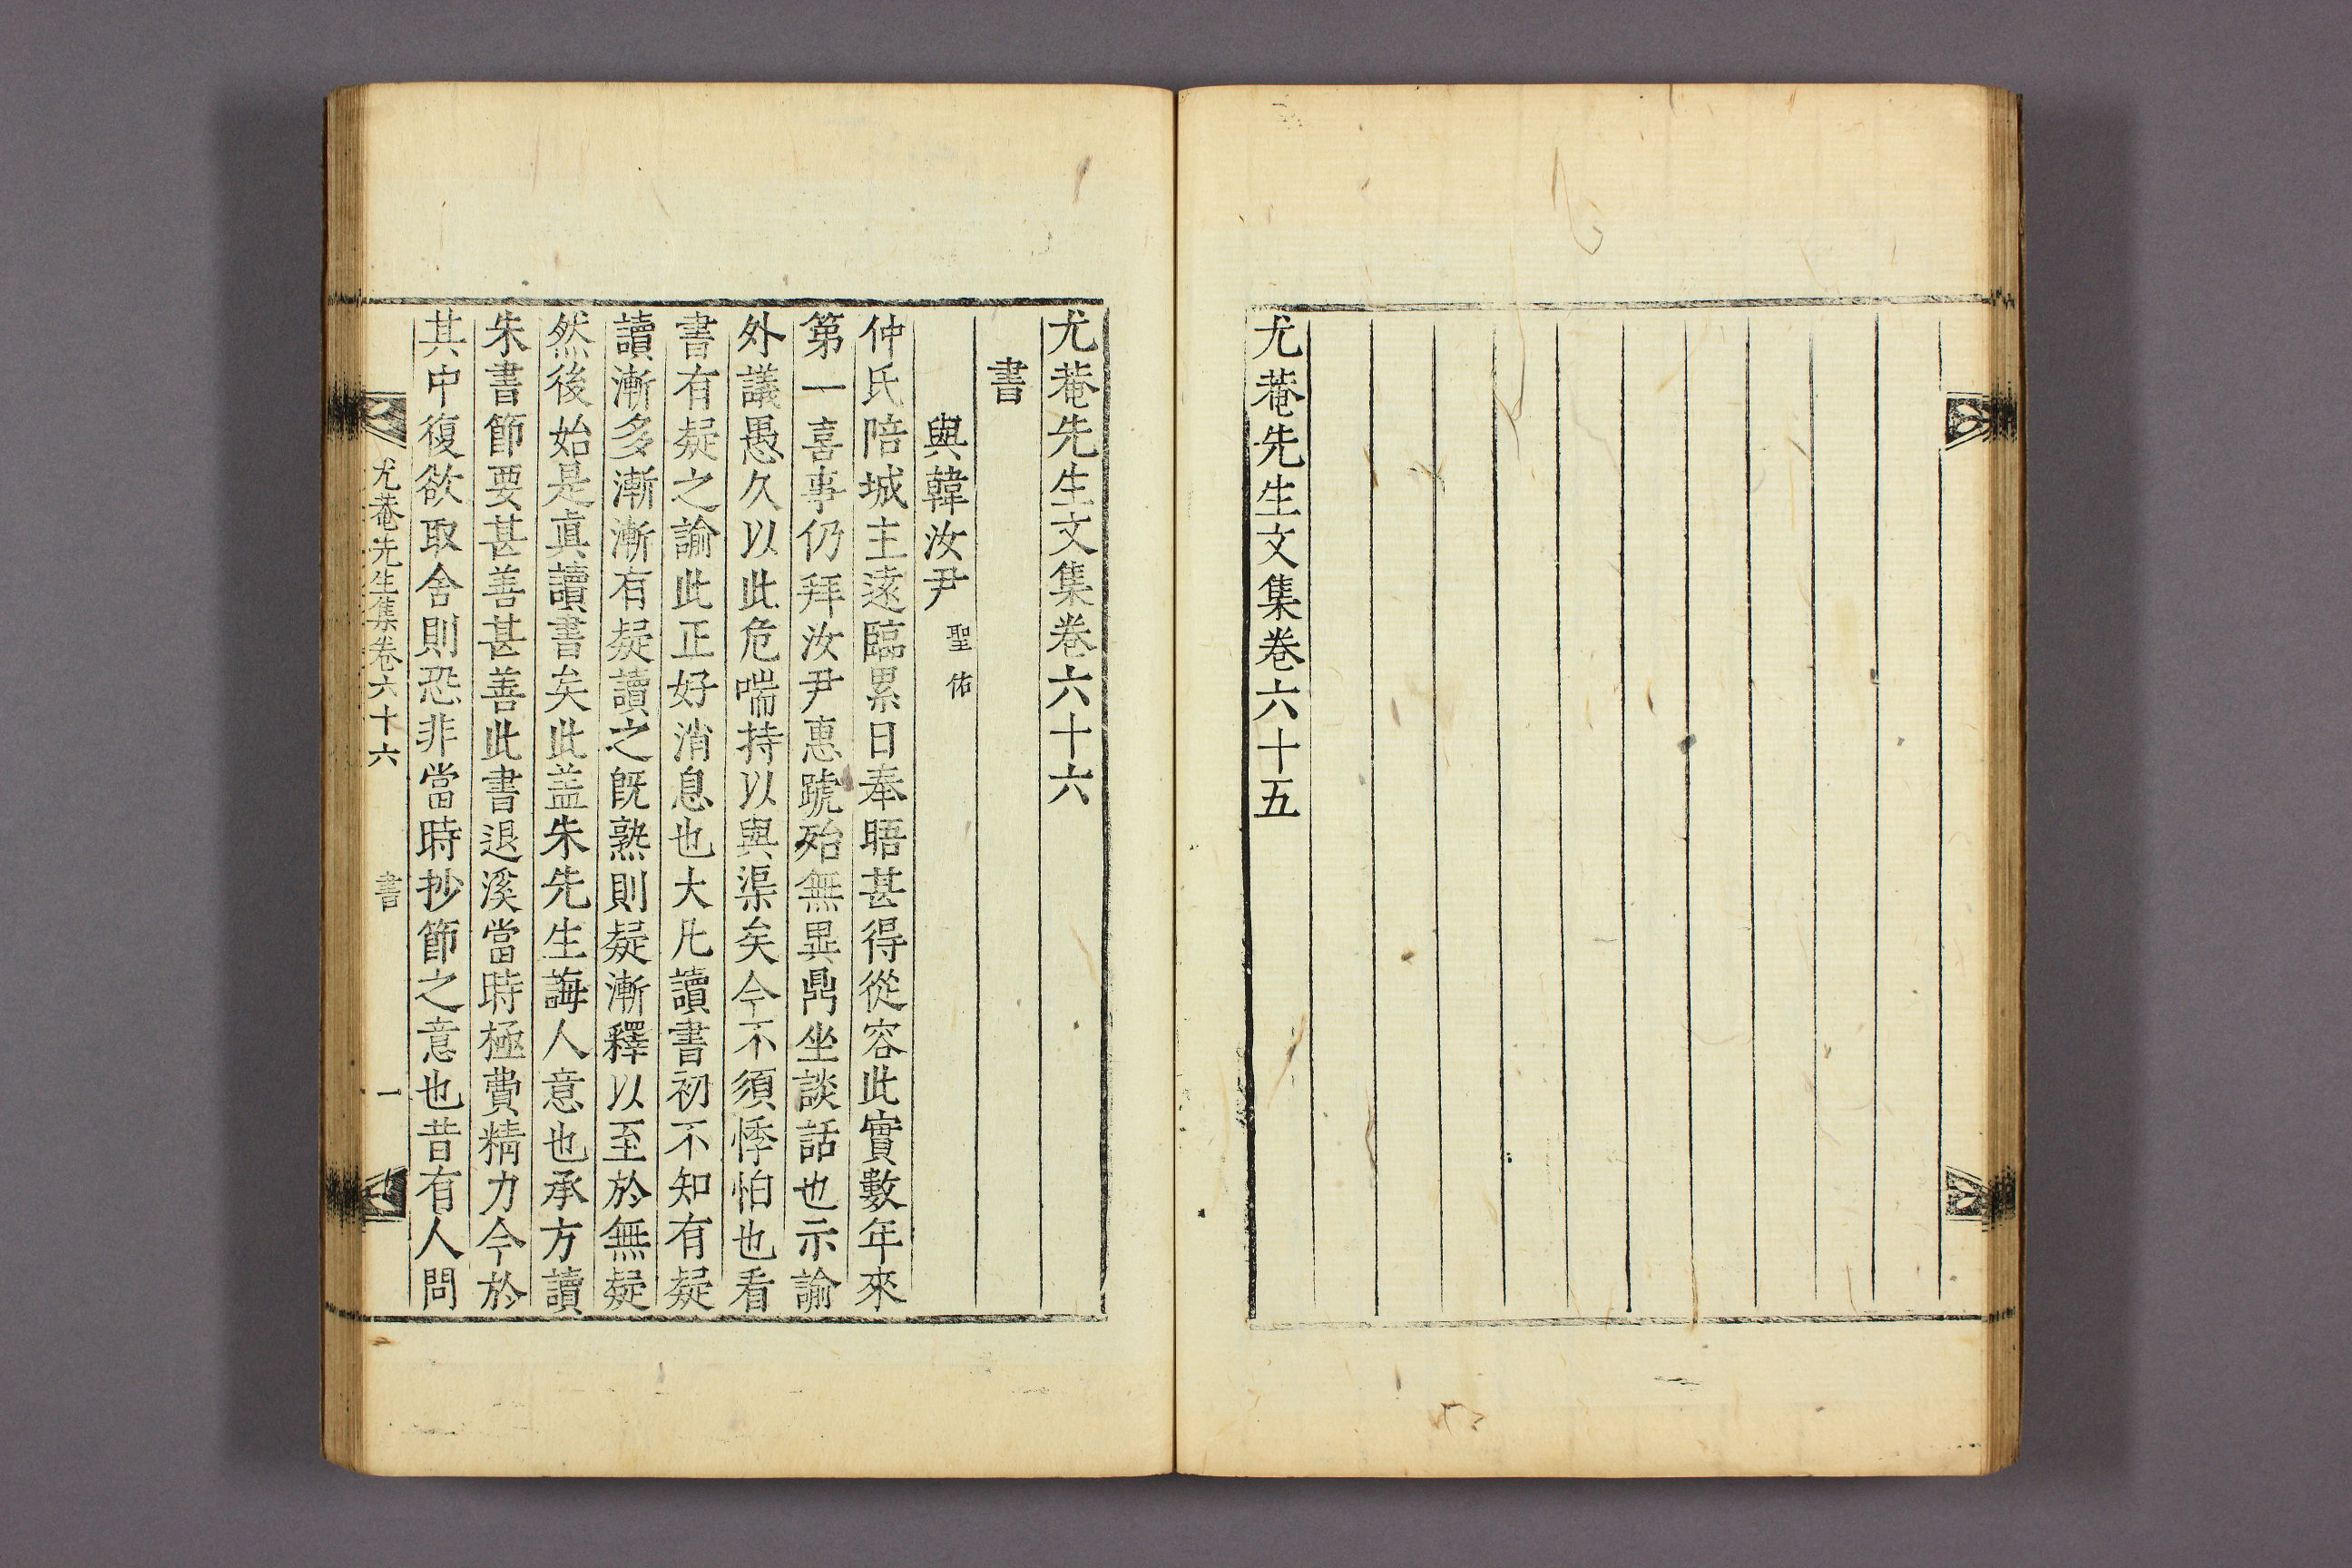 尤菴先生文集卷六十五
尤菴先生文集卷六十六
書
與韓汝尹聖佑
仲氏陪城主遠臨累日奉晤甚得從容此實數年來
第一喜事仍拜汝尹惠䝞殆無異鼎坐談話也示諭
外議愚久以此危喘持以與渠矣今不須悸怕也看
書有疑之諭此正好消息也大凡讀書初不知有疑
讀漸多漸漸有疑讀之旣熟則疑漸釋以至於無疑
然後始是眞讀書矣此盖朱先生誨人意也承方讀
朱書節要甚善甚善此書退溪當時極費精力今於
其中復欲取舍則恐非當時抄節之意也昔有人問
尤菴先生集卷六十六 書 一